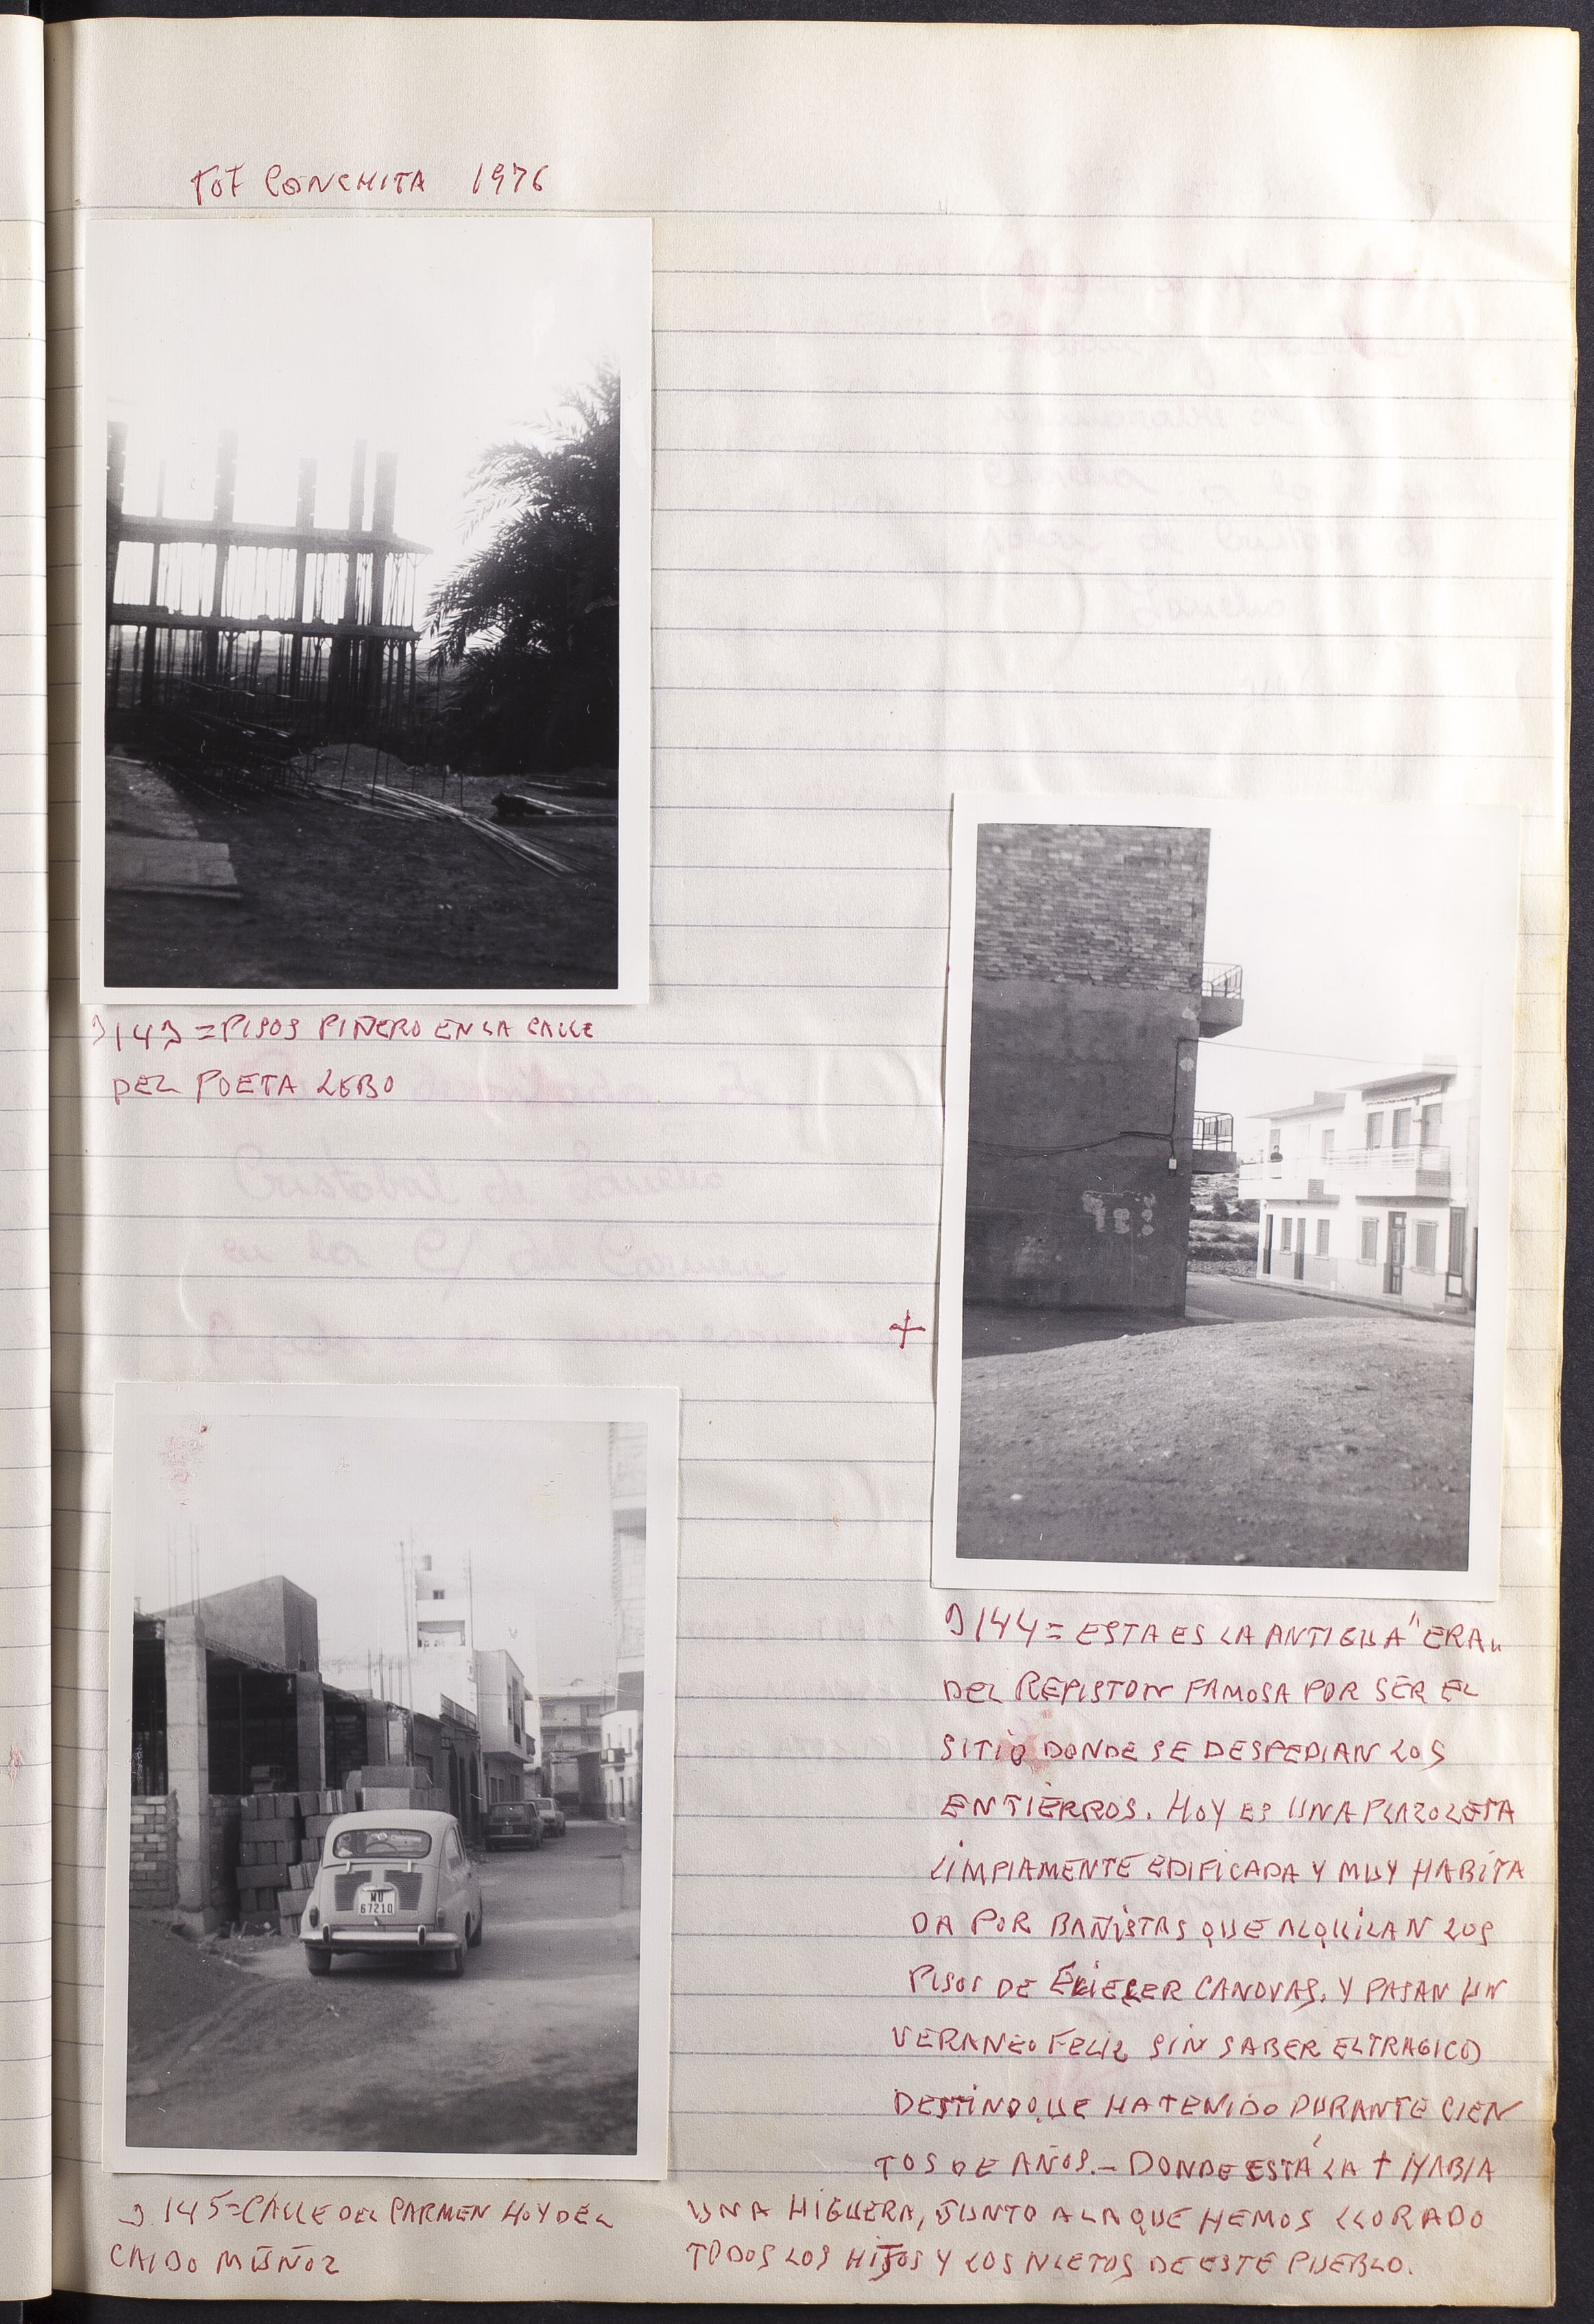 FOT CONCHITA 1976
J143=PISOS PIÑERO EN LA CALLE
DEL POETA LEBO
+
J144= ESTA ES LA ANTIGUA "ERA"
DEL REPISTON FAMOSA POR SER EL
SITIO DONDE SE DESPEDIAN LOS
ENTIERROS. HOY ES UNA PLAZOLETA
LIMPIAMENTE EDIFICADA Y MUY HABITA
DA POR BAÑISTAS QUE ALQUILAN LOS
PISOS DE ELIECER CANOVAS, Y PASAN UN
VERANEO FELIZ SIN SABER EL TRAGICO
DESTINO QUE HA TENIDO DURANTE CIEN
TOS DE AÑOS.- DONDE ESTÁ LA + HABIA
UNA HIGUERA, JUNTO A LA QUE HEMOS LLORADO
TODOS LOS HIJOS Y LOS NIETOS DE ESTE PUEBLO.
MU
67210
J.145=CALLE DEL CARMEN HOY DEL
CAIDO MUÑOZ
Cristobal de
en la C/ del Carmen